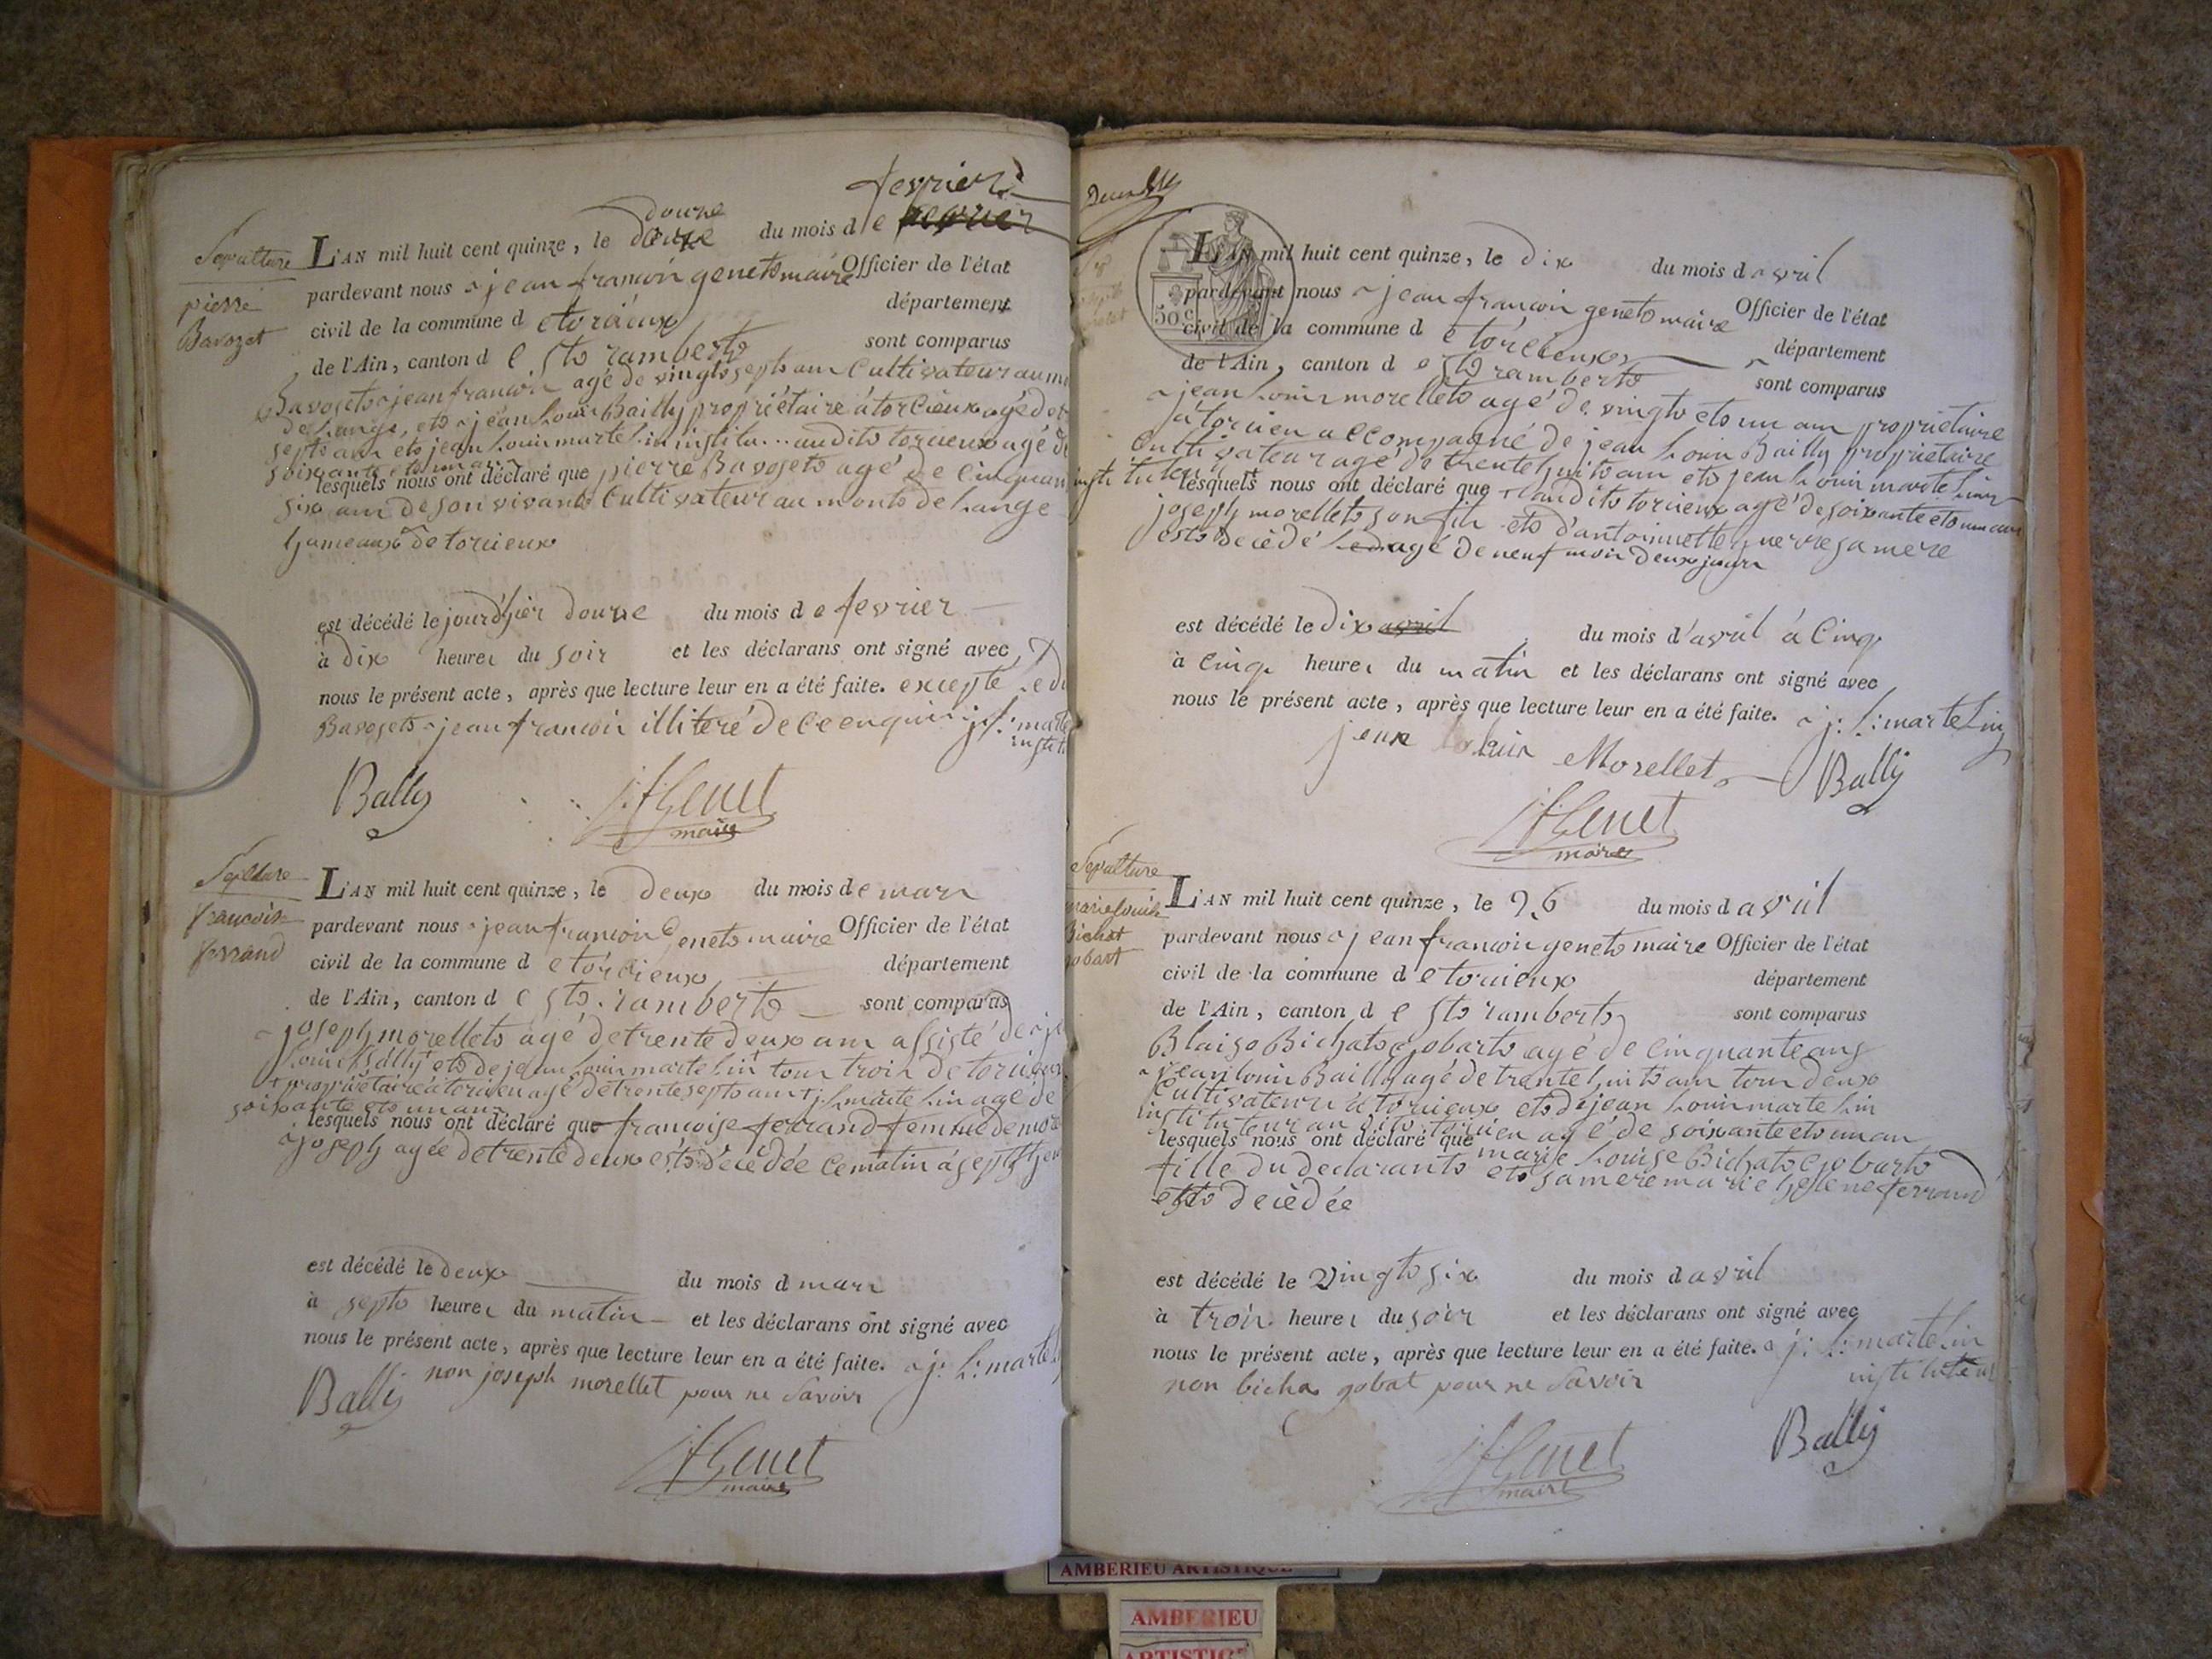 fevrier
Sepulture
pierre
Bavozet
L'AN mil huit cent quinze, le douze du mois de
pardevant nous jean francoin genets maire Officier de l'état
civil de la commune d e torcieux département
de l'Ain, canton d e sts ramberts sont comparus
Bavosets jean francoin agé de vingts septs ans Cultivateur au
de Lange, ets jean Louis Bailly propriétaire á torcieux agé de
septs ans ets jean Louis martelin audits torcieux agé
soixante ets un ans
lesquels nous ont déclaré que pierre Bavosets agé de
six ans de son vivants Cultivateur au monts de Lange
hameaux de torcieux
est décédé le jourd'hier douze du mois d e fevrier
à dix heures du soir et les déclarans ont signé avec
nous le présent acte, après que lecture leur en a été faite. excepté
Bavosets jean francoin illiteré de ce enquis
Bally
JfGenet
maire
Sepulture
francoise
ferrand
L'AN mil huit cent quinze, le deux du mois de mars
pardevant nous jean francoin genets maire Officier de l'état
civil de la commune d e torcieux département
de l'Ain, canton d e sts ramberts sont comparus
joseph morellets agé de trente deux ans assisté de
Louis Bailly ets de jean Louis martelin tous trois de
propriétaire á torcieu agé de trente septs ans j. L. martelin agé de
soixante ets un ans
lesquels nous ont déclaré que francoise ferrand femme de
joseph agée de trente deux ests décédée ce matin á septs
est décédé le deux du mois d mars
à septs heures du matin et les déclarans ont signé avec
nous le présent acte, après que lecture leur en a été faite. j: L:
Bally non joseph morellet pour ne savoir
JfGenet
maire
50 c.
L'AN mil huit cent quinze, le dix du mois d avril
pardevant nous jean francoin genets maire Officier de l'état
civil de la commune d e torcieux département
de l'Ain, canton d e sts ramberts sont comparus
jean Louis morellets agé de vingts ets un ans propriétaire
á torcieu accompagné de jean Louis Bailly propriétaire
Cultivateur agé de trente huits ans ets jean Louis martelin
lesquels nous ont déclaré que audits torcieux agé de soixante ets un ans
joseph morellets son fils ets d'antoinette sa mere
ests décédé agé de neuf mois deux jours
est décédé le dix avril du mois d'avril á Cinq
à Cinq heures du matin et les déclarans ont signé avec
nous le présent acte, après que lecture leur en a été faite. j: L: martelin
Morellet Bally
JfGenet
maire
Sepulture
marie louise
Bichat
gobart
L'AN mil huit cent quinze, le 26 du mois d avril
pardevant nous jean francoin genets maire Officier de l'état
civil de la commune d e torcieux département
de l'Ain, canton d e sts ramberts sont comparus
Blaise Bichats gobarts agé de Cinquante ans
jean louis Bailly agé de trente huits ans tous deux
Cultivateurs á torcieux ets de jean Louis martelin
instituteur au dits torcieu agé de soixante ets un an
lesquels nous ont déclaré que marie Louise Bichats gobarts
fille du declarants ets sa mere marie helene ferrand
ests décédée
est décédé le vingts six du mois d avril
à trois heures du soir et les déclarans ont signé avec
nous le présent acte, après que lecture leur en a été faite. j: L: martelin
non bicha gobat pour ne savoir instituteur
Bally
JfGenet
maire
AMBERIEU ARTISTIQUE
AMBERIEU